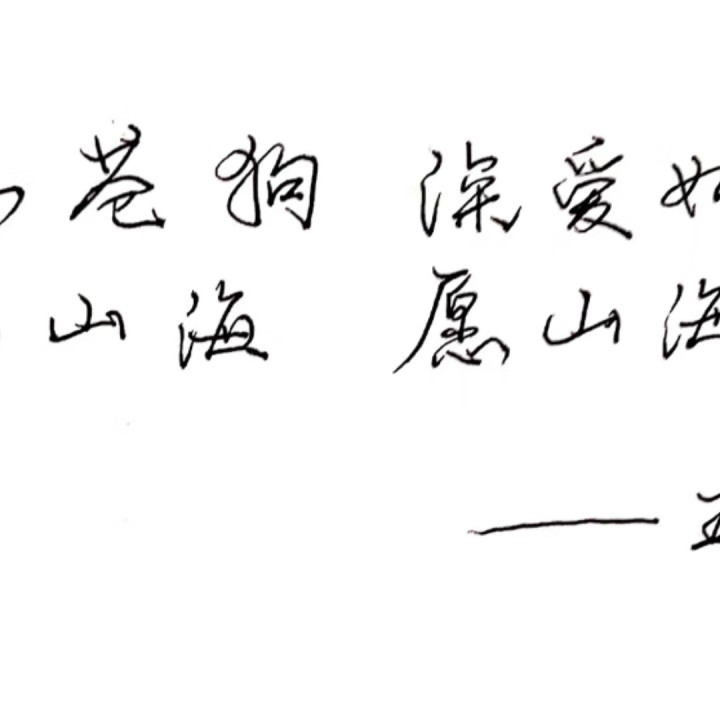 苍狗 深爱如
山海 愿山海
——五